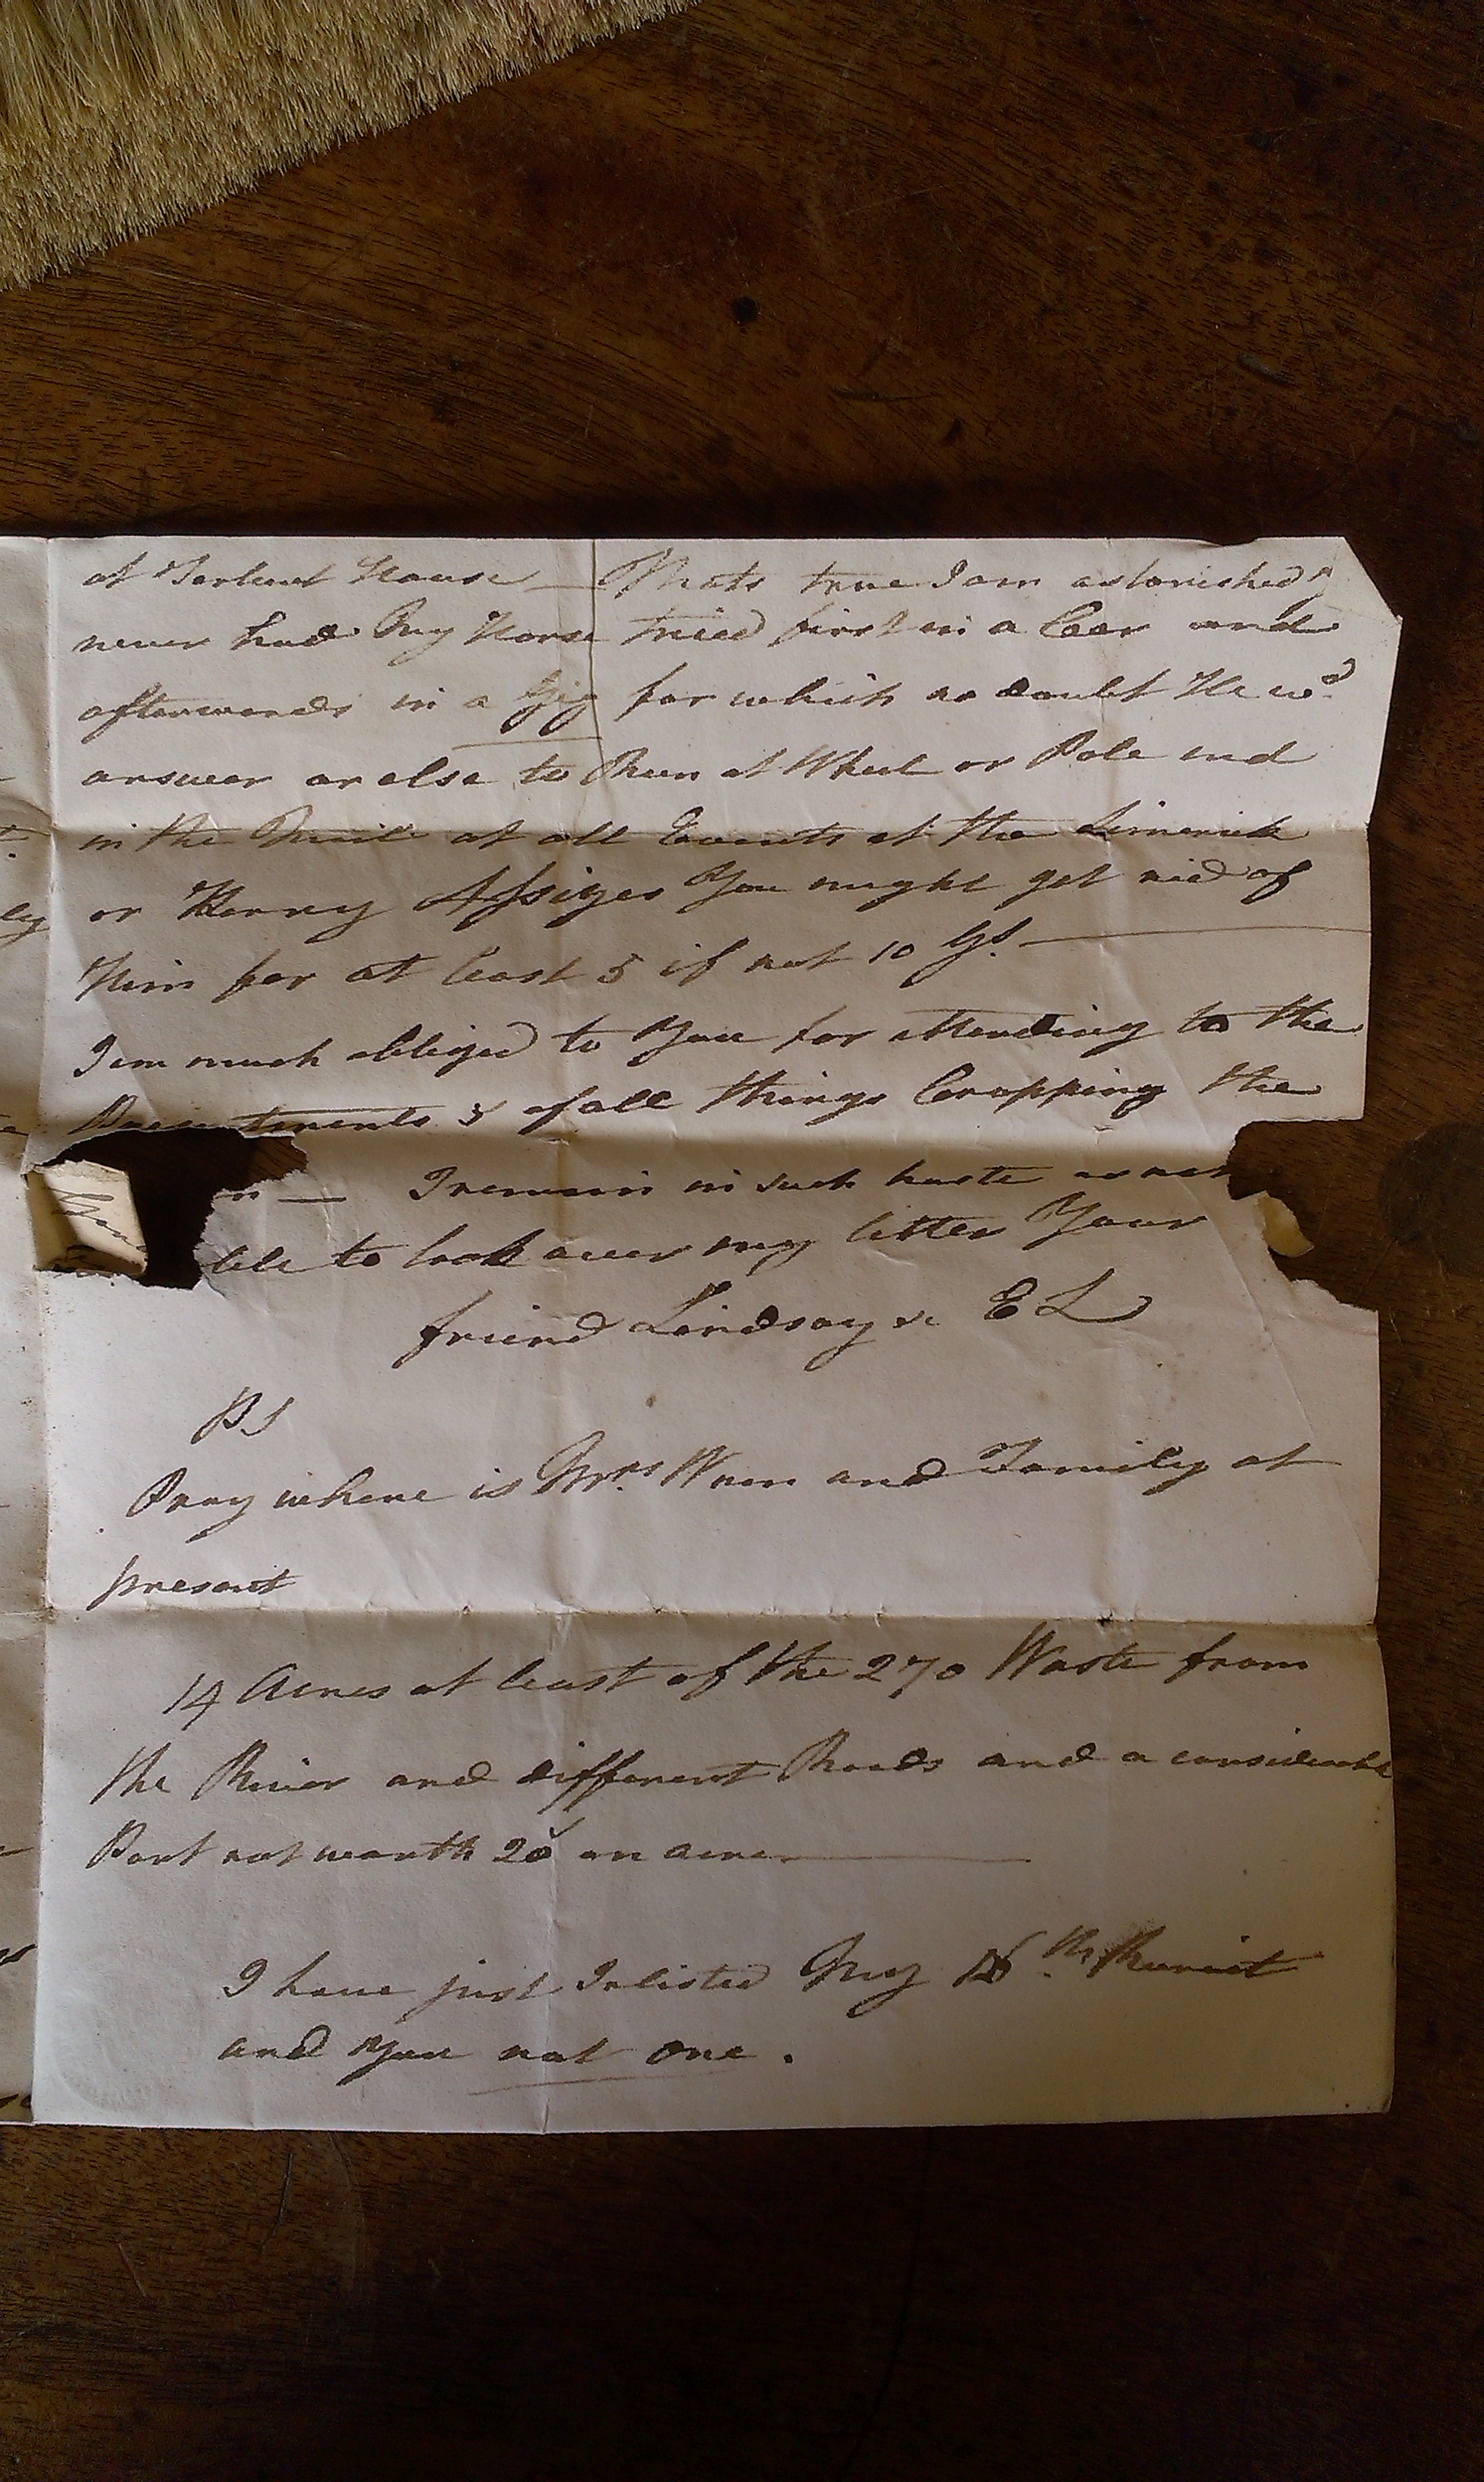 at Tarbert House — Thats true I am astonished y
never had My Horse tried first in a Car and
afterwards in a Gig for which no doubt He wd
answer or else to Run at Wheel or Pole end
in the Mail at all Events at the Limerick
or Kerry Assizes You might get rid of
Him for at least 5 if not 10 Gs. —
I am much obliged to You for attending to the
Presentments & of all things Cropping the
n — I remain in such haste as not
ble to look over my letter Your
friend Lindsay v E L
PS
Pray where is Mrs. Wren and Family at
present
14 Acres at least of the 270 Waste from
the River and different Roads and a considerable
Part not worth 20s an acre —
I have just Inlisted My th Recruit
and You not one.